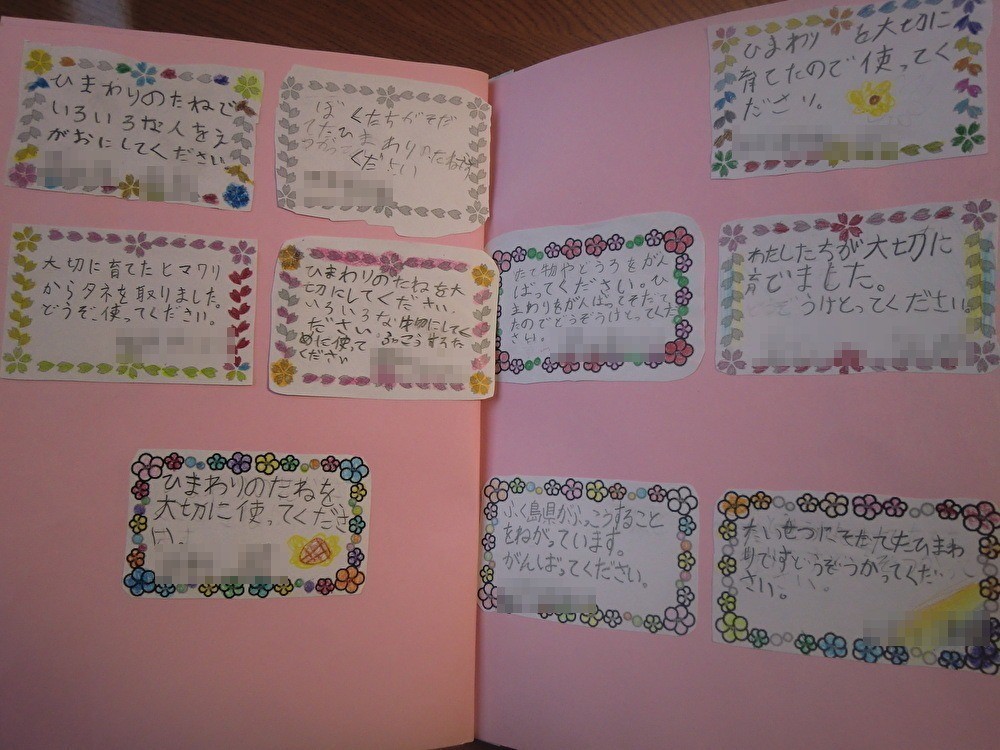 ひまわりのたねで
いろいろな人をえ
がおにしてください
ぼくたちがそだ
てたひまわりのたね
つかって
ください
大切に育てたヒマワリ
からタネを取りました。
どうぞ、使ってください。
ひまわりのたねを大
切にしてください。
いろいろな
ください。
めに使って ふっこうするた
ください
ひまわりのたねを
大切に使ってくださ
い。
たて物やどうろをがん
ばってください。ひ
まわりをがんばってそだて
たのでどうぞうけとってくだ
さい。
ふく島県がふっこうすること
をねがっています。
がんばってください。
ひまわり を大切に
育てたので使ってく
ださい。
わたしたちが大切に
育てました。
うけとってください。
たいせつにそだてたひまわ
りですどうぞつかってくだ
さい。